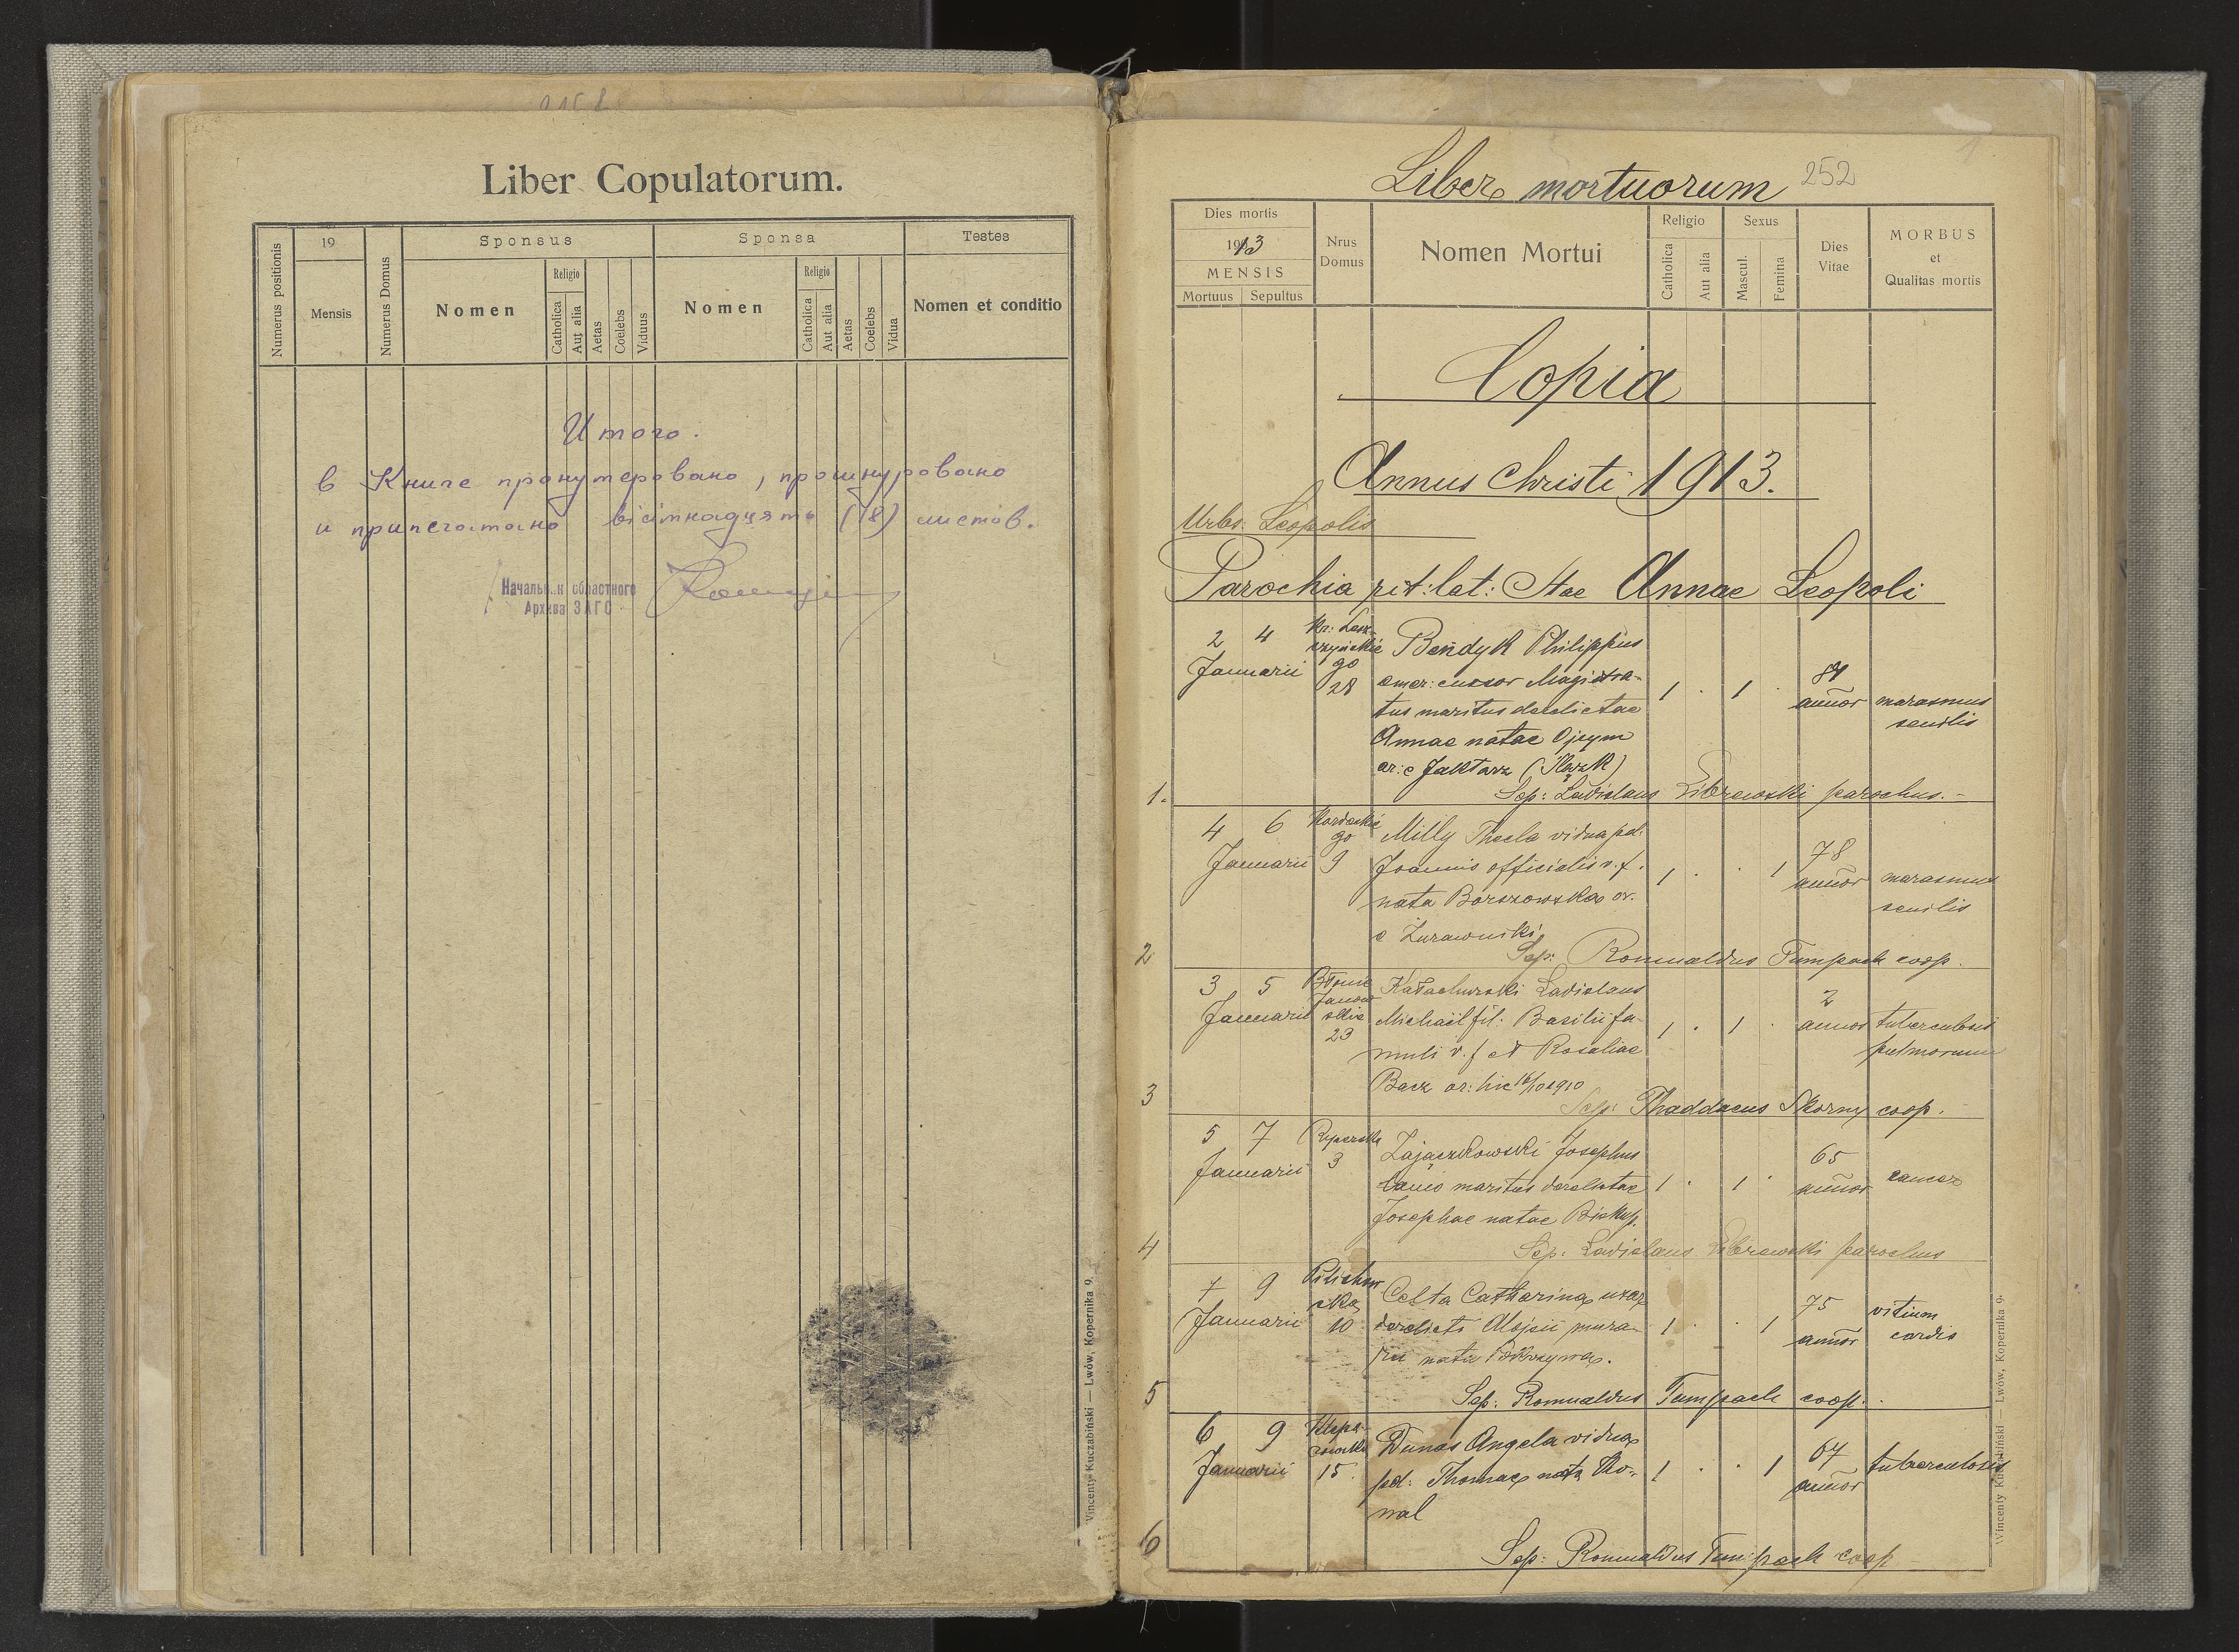 Liber Copulatorum.
Numerus positionis
19
Mensis
Numerus Domus
Sponsus
Nomen
Religio
Catholica
Aut alia
Aetas
Coelebs
Viduus
Sponsa
Nomen
Religio
Catholica
Aut alia
Aetas
Coelebs
Vidua
Testes
Nomen et conditio
Итого.
в Книге пронумеровано, прошнуровано
и припечатано вісімнадцять (18) листов.
Начальник областного
Архива ЗАГС
Vincenty Kuczabiński — Lwów, Kopernika 9.
Liber mortuorum 252
Dies mortis
1913
MENSIS
Mortuus Sepultus
Nrus
Domus
Nomen Mortui
Religio
Catholica
Aut alia
Sexus
Mascul.
Femina
Dies
Vitae
MORBUS
et
Qualitas mortis
Copia
Annus Christi 1913.
Urbs: Leopolis
Parochia rit: lat: Stae Annae Leopoli
2 4
Januarii
28
Bendyk Philippus
emer: cursor Magistra-
tus maritus derelictae
Annae natae
1 . 1 .
annor
marasmus
senilis
1.
Sep: Ladislaus Librewski parochus.-
4 6
Januarii
Kordeckie
go
9
Milly Thecla vidua pd:
Joannis officialis v. f.
nata Borszowska or.
e Żurawniki
1 . . 1
78
annor
marasmus
senilis
2
Sep: Romualdus Tumpach coop.
3 5
Januarii
Błonie
Janow
skie
23
Ladislaus
Michaël fil: Basilii fa-
muli v. f et Rosaliae
Bacz or: hic 16/10 1910
1 . 1 .
2
annor
tuberculosis
pulmonum
3
Sep: Thaddaeus Skorny coop.
5 7
Januarii
3
Zajączkowski Josephus
lanio maritus derelictae
Josephae natae Biskup.
1 . 1 .
65
annor
cancer
4
Sep: Ladislaus Librewski parochus
7 9
Januarii
10
Celta Catharina uxor
derelicti Aloisii mura-
rii nata Pokrzywa.
1 . . 1
75
annor
vitium
cordis
5
Sep: Romualdus Tumpach coop.
6 9
Januarii
Klepa-
rowska
15.
Dunas Angela vidua
pd: Thomae nata Ko-
wal
1 . . 1
67
annor
tuberculosis
6
Sep: Romualdus Tumpach coop
Vincenty Kuczabiński — Lwów, Kopernika 9.